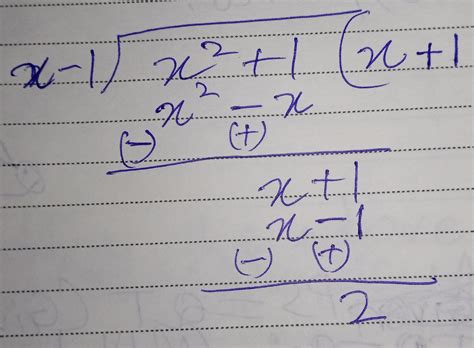 x-1) x² + 1 (x+1
x² - x
(-) (+)
x + 1
x - 1
(-) (+)
2